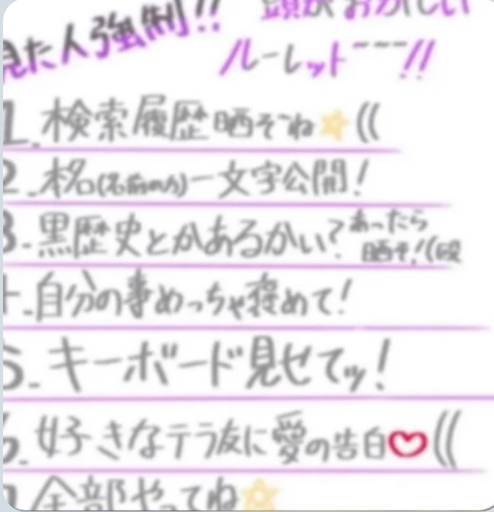 頭がおかしい
見た人強制!!
ルーレット~~~!!
1.検索履歴晒そーね☆((
2.本名(名前のみ)一文字公開!
3.黒歴史とかあるかい?あったら
晒そ!(殴
4.自分の事めっちゃ褒めて!
5.キーボード見せてッ!
6.好きなテラ友に愛の告白♡((
7.全部やってね☆